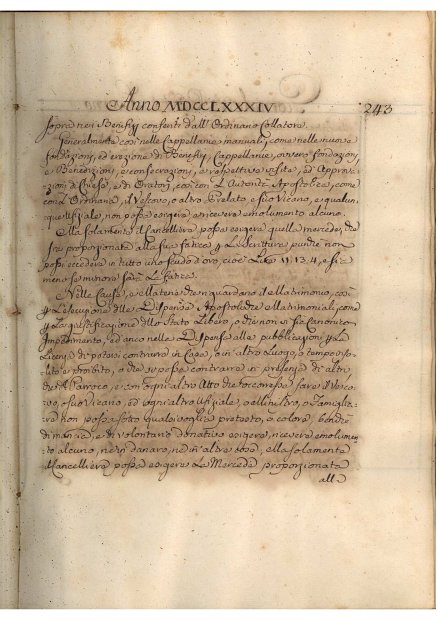 Anno MDCCLXXXIV
243
sopra nei Benefizj conferiti dall' Ordinario Collatore.
Generalmente così nelle Cappellanie manuali, come nelle nuove
fondazioni, ed erezione di Benefizj, Cappellanie, ovvero fondazioni
e Benedizioni, e consecrazioni, e rispettive visite, ed Approva-
zioni di Chiese, e di Oratorj, così con l'Autorità Apostolica, come
con l'Ordinaria, il Vescovo, o altro Prelato, e suo Vicario, e qualun-
que Ufiziale, non possa esigere, e ricevere emolumento alcuno.
Ma solamente il Cancelliere possa esigere quella mercede, che
sia proporzionata alla sua fatica per le Scritture, purchè non
possi eccedere in tutto uno scudo d'oro, cioè Lire 11.13.4, e si
meno se minore sarà la fatica.
Nelle Cause, e Materie che riguardano il Matrimonio, così
per l'esecuzione delle Dispense Apostoliche Matrimoniali, come
per la giustificazione dello Stato Libero, o che non vi sia Canonico
Impedimento, ed anco nelle Dispense alle pubblicazioni per la
Licenza di potersi contrarre in Casa, o in altro Luogo, o tempo inso-
lito e proibito, o che si possa contrarre in presenza di altri
che il Parroco, e con ogni altro Atto che torcorressa fare il Vesco-
vo, suo Vicario, ed ogni altro Ufiziale, o Ministro, o Famiglia-
re non possa sotto qualsivoglia pretesto, o colore, benchè
di mancia, e di volontario donativo esigere, ricevere emolumen-
to alcuno, nè in danaro, nè in altra cosa, ma solamente
il Cancelliere possa esigere la Mercede proporzionata
alla